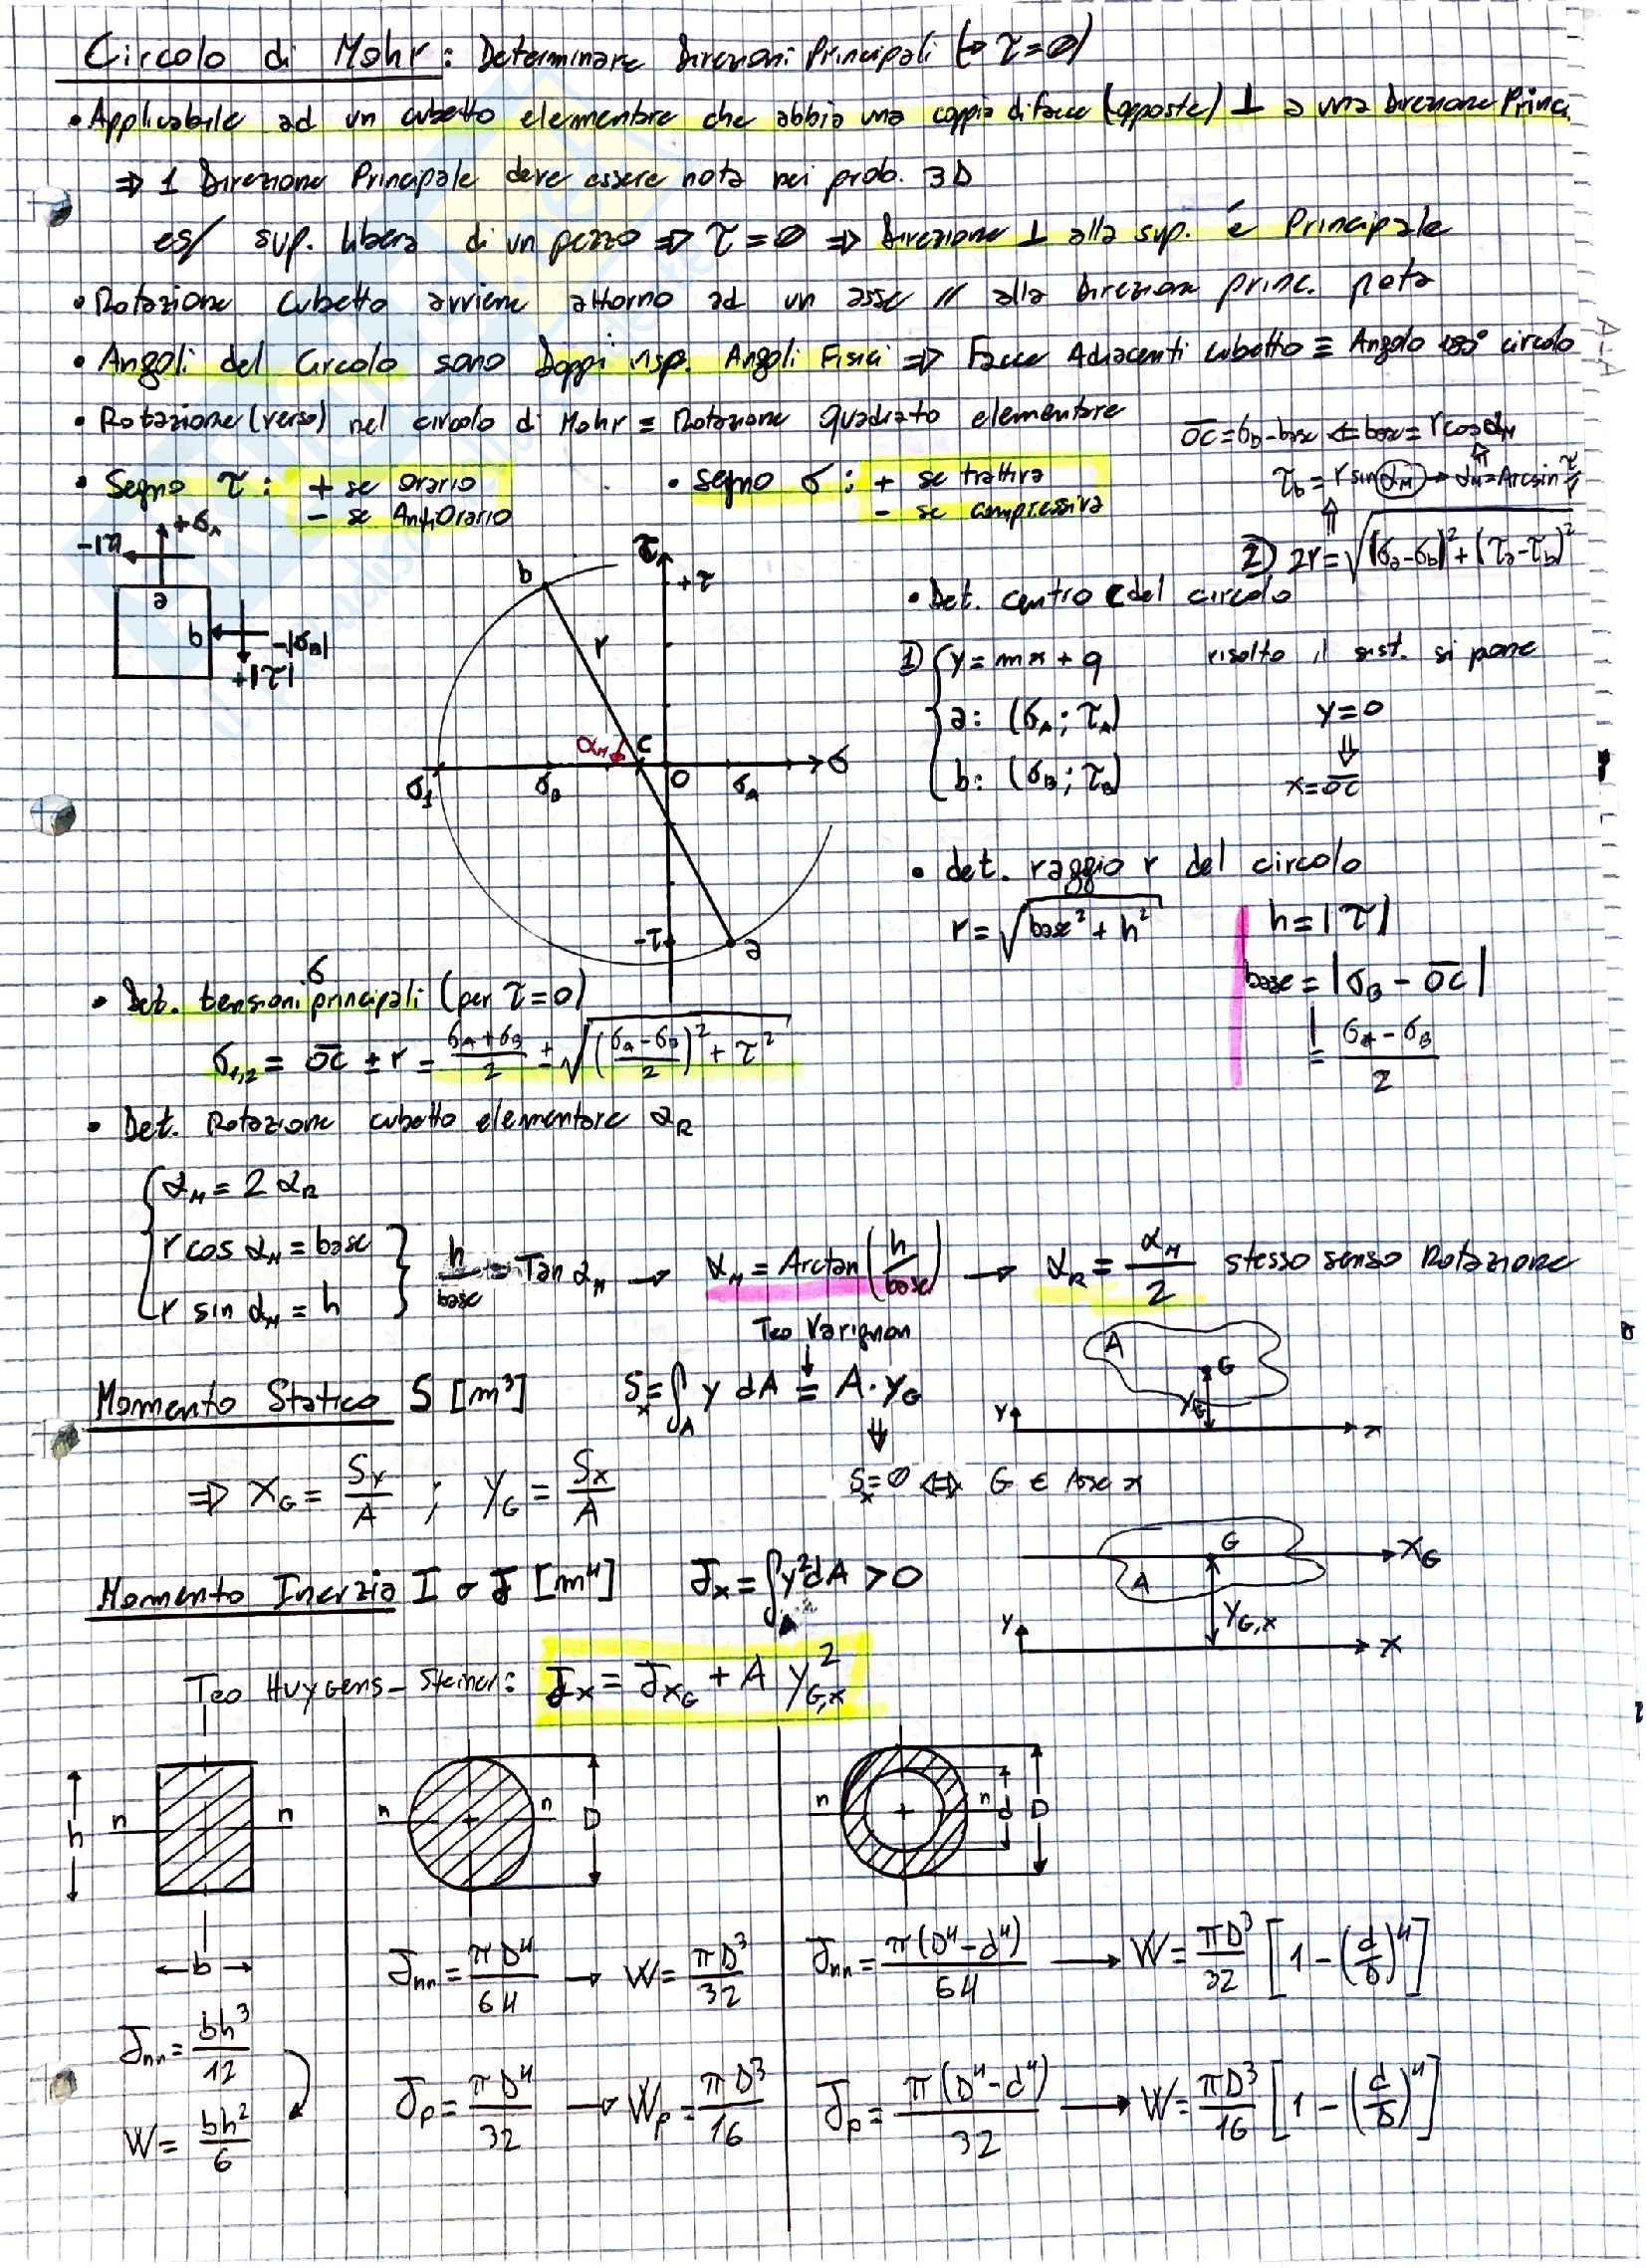 Circolo di Mohr: Determinare Direzioni Principali (→ τ=0)
• Applicabile ad un cubetto elementare che abbia una coppia di facce (opposte) ⊥ a una Direzione Princ.
⇒ 1 Direzione Principale deve essere nota nei prob. 3D
es/ sup. libera di un pezzo ⇒ τ=0 ⇒ Direzione ⊥ alla sup. é Principale
• Rotazione cubetto avviene attorno ad un asse // alla Direzione princ. nota
• Angoli del Circolo sono Doppi risp. Angoli Fisici ⇒ Facce Adiacenti cubetto ≡ Angolo 180° circolo
• Rotazione (verso) nel circolo di Mohr = Rotazione Quadrato elementare
OC = σB - base ⇐ base = r cos αM
• Segno τ: + se Orario
- se AntiOrario
• segno σ: + se trattiva
- se compressiva
τb = r sin αM → αM = Arcsin τ/r
2) 2r = √((σa-σb)² + (τa-τb)²)
-|τ| +σA
a
b -|σB|
+|τ|
τ
+τ
b
r
αM C
σ1 σB O σA σ
-τ a
• Det. centro C del circolo
1) { y = mx + q
a: (σA; τA)
b: (σB; τB)
risolto il sist. si pone
y=0
⇓
x=OC
• det. raggio r del circolo
r = √(base² + h²)
h = |τ|
base = |σB - OC|
= (σA - σB)/2
• Det. tensioni σ principali (per τ=0)
σ1,2 = OC ± r = (σA+σB)/2 ± √(((σA-σB)/2)² + τ²)
• Det. Rotazione cubetto elementare αR
{ αM = 2 αR
r cos αM = base
r sin αM = h }
h/base = Tan αM → αM = Arctan (h/base) → αR = αM/2 stesso senso Rotazione
Teo Varignon
Momento Statico S [m³] Sx = ∫A y dA = A·yG
A G YG Y x
⇒ XG = Sy/A ; YG = Sx/A
⇓
Sx=0 ⇔ G ∈ Asse x
Momento Inerzia I o J [m⁴] Jx = ∫ y² dA > 0
G XG A YG,x Y X
Teo Huygens-Steiner: Jx = JxG + A y²G,x
h n n b
n n D
n n d D
Jnn = bh³/12
W = bh²/6
Jnn = πD⁴/64 → W = πD³/32
Jp = πD⁴/32 → Wp = πD³/16
Jnn = π(D⁴-d⁴)/64 → W = πD³/32 [1 - (d/D)⁴]
Jp = π(D⁴-d⁴)/32 → W = πD³/16 [1 - (d/D)⁴]
A-A